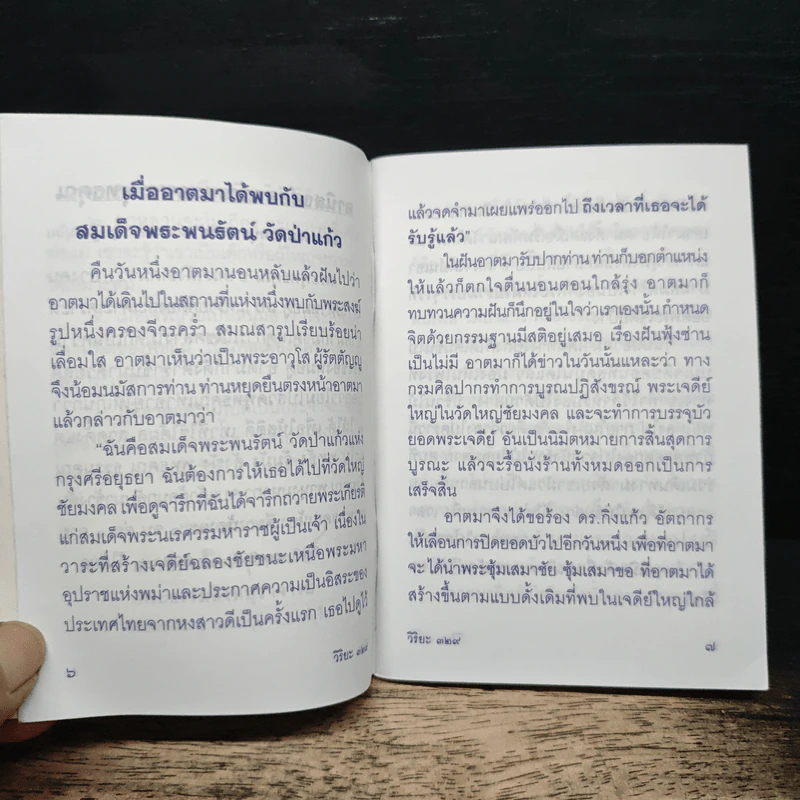 เมื่ออาตมาได้พบกับ
สมเด็จพระพนรัตน์ วัดป่าแก้ว
คืนวันหนึ่งอาตมานอนหลับแล้วฝันไปว่า
อาตมาได้เดินไปในสถานที่แห่งหนึ่งพบกับพระสงฆ์
รูปหนึ่งครองจีวรคร่ำ สมณสารูปเรียบร้อยน่า
เลื่อมใส อาตมาเห็นว่าเป็นพระอาวุโส ผู้รัตตัญญู
จึงน้อมนมัสการท่าน ท่านหยุดยืนตรงหน้าอาตมา
แล้วกล่าวกับอาตมาว่า
"ฉันคือสมเด็จพระพนรัตน์ วัดป่าแก้วแห่ง
กรุงศรีอยุธยา ฉันต้องการให้เธอได้ไปที่วัดใหญ่
ชัยมงคล เพื่อดูจารึกที่ฉันได้จารึกถวายพระเกียรติ
แก่สมเด็จพระนเรศวรมหาราชผู้เป็นเจ้า เนื่องใน
วาระที่สร้างเจดีย์ฉลองชัยชนะเหนือพระมหา
อุปราชแห่งพม่าและประกาศความเป็นอิสระของ
ประเทศไทยจากหงสาวดีเป็นครั้งแรก เธอไปดูไว้
วิริยะ ๓๒๙
๖
แล้วจดจำมาเผยแพร่ออกไป ถึงเวลาที่เธอจะได้
รับรู้แล้ว"
ในฝันอาตมารับปากท่าน ท่านก็บอกตำแหน่ง
ให้แล้วก็ตกใจตื่นนอนตอนใกล้รุ่ง อาตมาก็
ทบทวนความฝันก็นึกอยู่ในใจว่าเราเองนั้น กำหนด
จิตด้วยกรรมฐานมีสติอยู่เสมอ เรื่องฝันฟุ้งซ่าน
เป็นไม่มี อาตมาก็ได้ข่าวในวันนั้นแหละว่า ทาง
กรมศิลปากรทำการบูรณปฏิสังขรณ์ พระเจดีย์
ใหญ่ในวัดใหญ่ชัยมงคล และจะทำการบรรจุบัว
ยอดพระเจดีย์ อันเป็นนิมิตหมายการสิ้นสุดการ
บูรณะ แล้วจะรื้อนั่งร้านทั้งหมดออกเป็นการ
เสร็จสิ้น
อาตมาจึงได้ขอร้อง ดร.กิ่งแก้ว อัตถากร
ให้เลื่อนการปิดยอดบัวไปอีกวันหนึ่ง เพื่อที่อาตมา
จะ ได้นำพระซุ้มเสมาชัย ซุ้มเสมาขอ ที่อาตมาได้
สร้างขึ้นตามแบบดั้งเดิมที่พบในเจดีย์ใหญ่ใกล้
วิริยะ ๓๒๙
๗